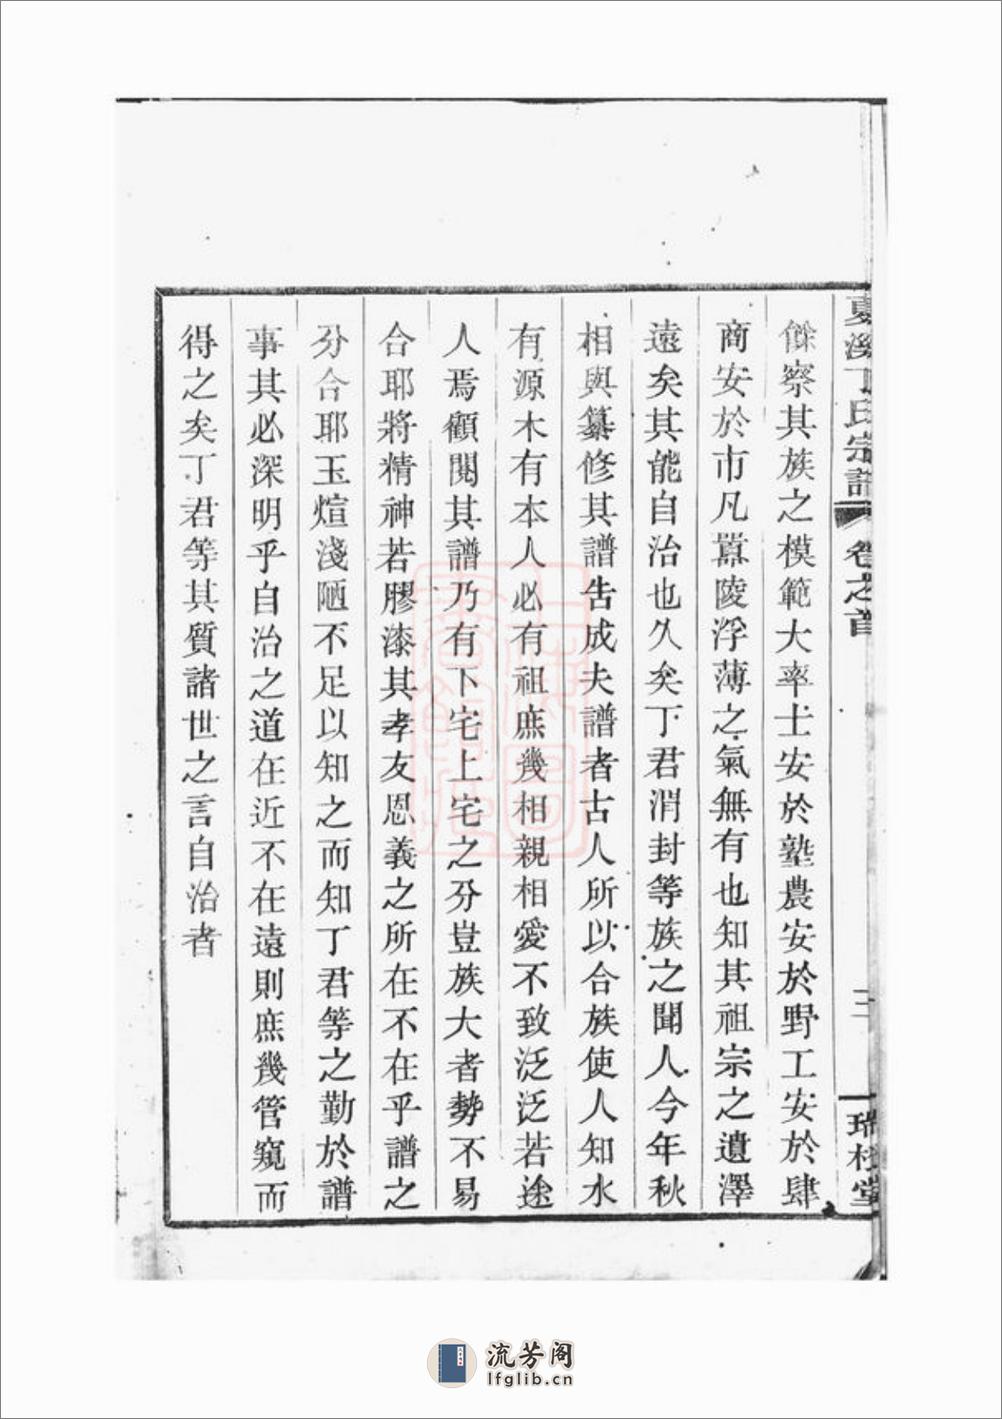 夏溪丁氏宗譜
卷之首
三
瑞杖堂
餘察其族之模範大率士安於塾農安於野工安於肆
商安於市凡囂陵浮薄之氣無有也知其祖宗之遺澤
遠矣其能自治也久矣丁君渭封等族之聞人今年秋
相與纂修其譜告成夫譜者古人所以合族使人知水
有源木有本人必有祖庶幾相親相愛不致泛泛若途
人焉顧閱其譜乃有下宅上宅之分豈族大者勢不易
合耶將精神若膠漆其孝友恩義之所在不在乎譜之
分合耶玉煊淺陋不足以知之而知丁君等之勤於譜
事其必深明乎自治之道在近不在遠則庶幾管窺而
得之矣丁君等其質諸世之言自治者
流芳阁
lfglib.cn